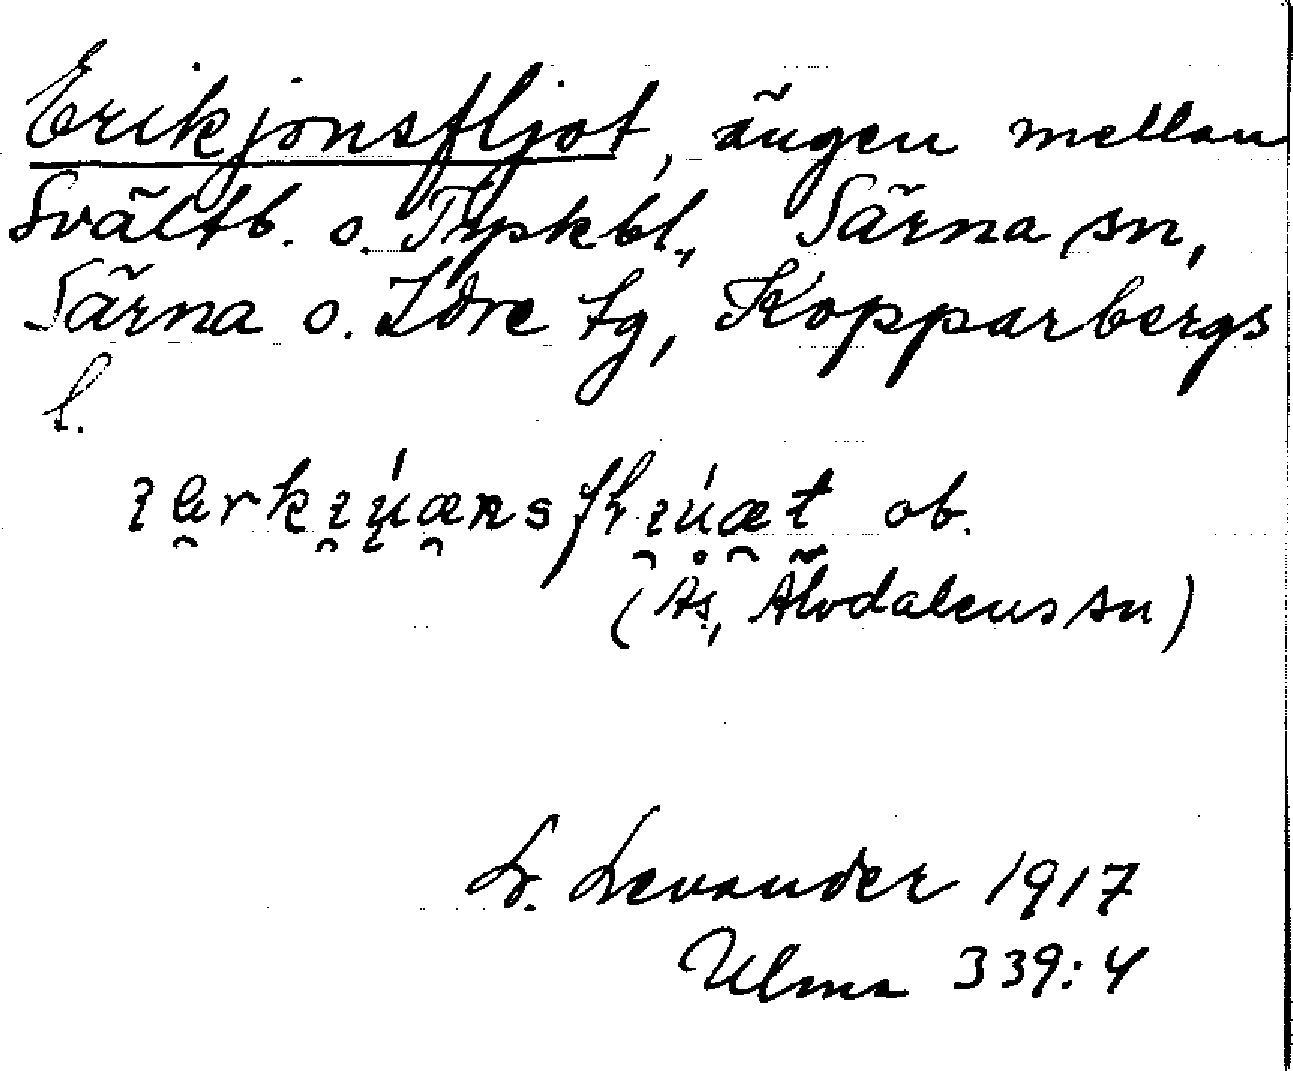 Erikjonsfljot, ängen mellan
Svältb. o. Trpkbl., Särna sn,
Särna o. Idre tg, Kopparbergs
l.
ob.
(Ås, Älvdalens sn)
L. Levander 1917
Ulma 339:4